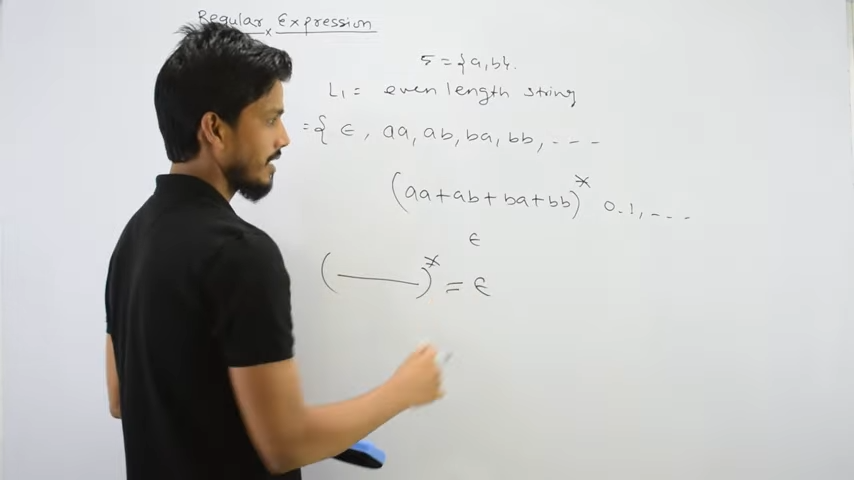 Regular Expression
Σ = {a,b}.
L₁ = even length string
= { ε, aa, ab, ba, bb, - - -
(aa+ab+ba+bb)* 0-1, - - -
ε
( — )* = ε